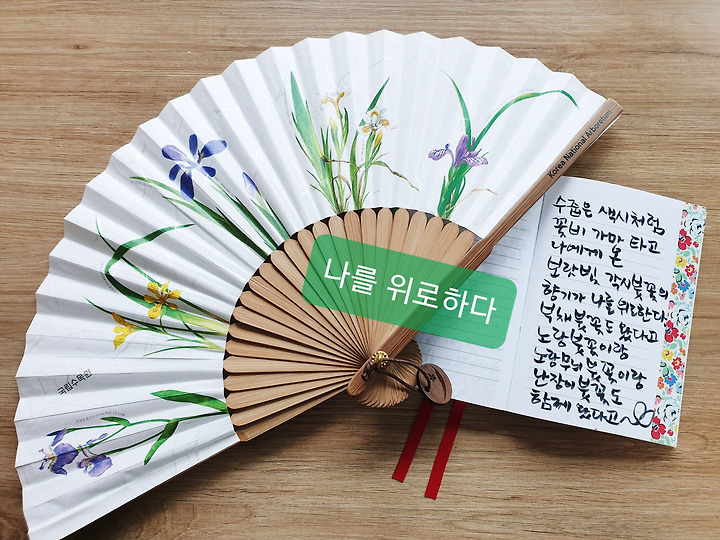 Korea National Arboretum
나를 위로하다
국립수목원
수줍은 색시처럼
꽃비 가마 타고
나에게 온
보랏빛 각시붓꽃의
향기가 나를 위로한다
부채붓꽃도 왔다고
노랑붓꽃이랑
노랑무늬붓꽃이랑
난장이붓꽃도
함께 왔다고